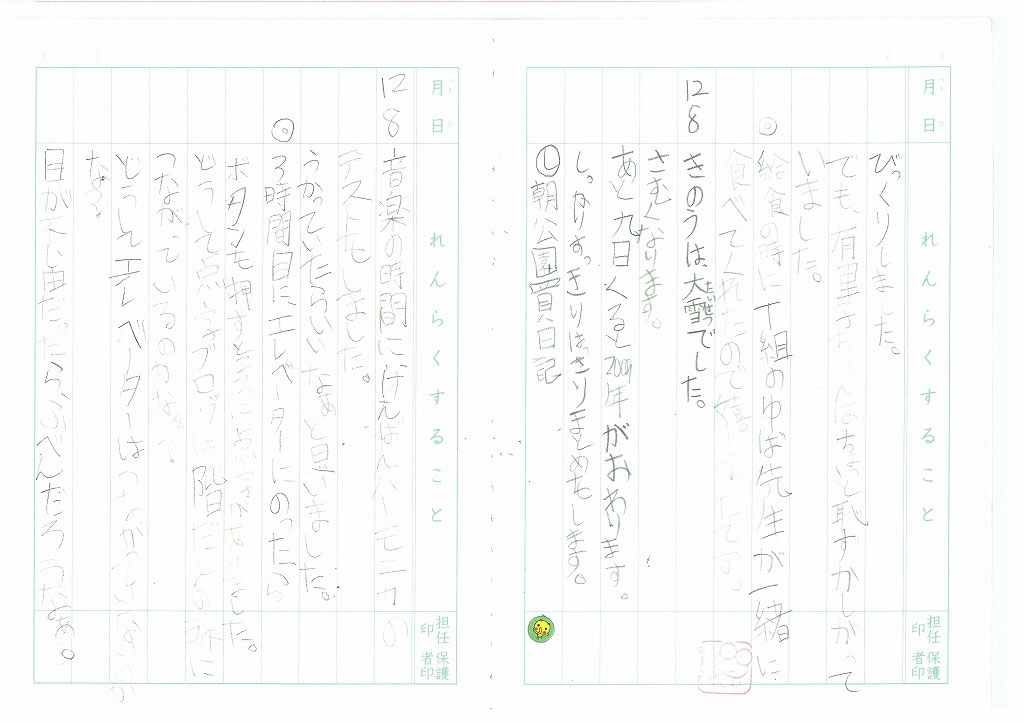 月 日 れんらくすること 担任印 保護者印
びっくりしました。
でも、有里さちゃんはちょっと恥すかしがって
いました。
◎ 給食の時に 組のゆば先生が一緒に
食べてくれたので嬉 かったです。
12 8 きのうは大雪でした。
たいせつ
さむくなります。
あと九日くると2009年がおわります。
しっかりすっきりはっきりまとめをします。
朝公園 日記
月 日 れんらくすること 担任印 保護者印
12 8 音楽の時間にけんばんハーモニカの
テストをしました。
うかっていたらいいなぁと思いました。
◎ 3時間目にエレベーターにのったら
ボタンを押すところに がありました。
どうして点 ブロックは階だんの に
つながっているのかなぁ?。
どうしてエレベーターはつながってないのか
なぁ
目が不 由だったらふべんだろうなぁ。